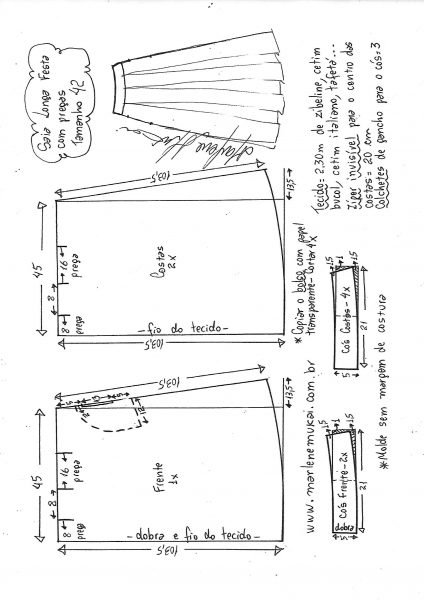 Saia Longa Festa
com pregas
Tamanho 42
Tecido = 2,30m de zibeline, cetim
bucol, cetim italiano, tafetá...
Zíper invisível para o centro das
costas = 20 cm
Colchetes de gancho para o cós = 3
103,5
13,5
45
16
prega
8
8
prega
Costas
2x
- fio do tecido -
103,5
* Copiar o bolso com papel
transparente - Cortar 4x
1,5
1
1,5
Cós Costas - 4x
21
5
103,5
13,5
45
16
prega
8
8
prega
Frente
1x
- dobra e fio do tecido -
103,5
www.marlenemukai.com.br
1,5
1
1,5
Cós frente - 2x
dobra
21
5
* Molde sem margem de costura